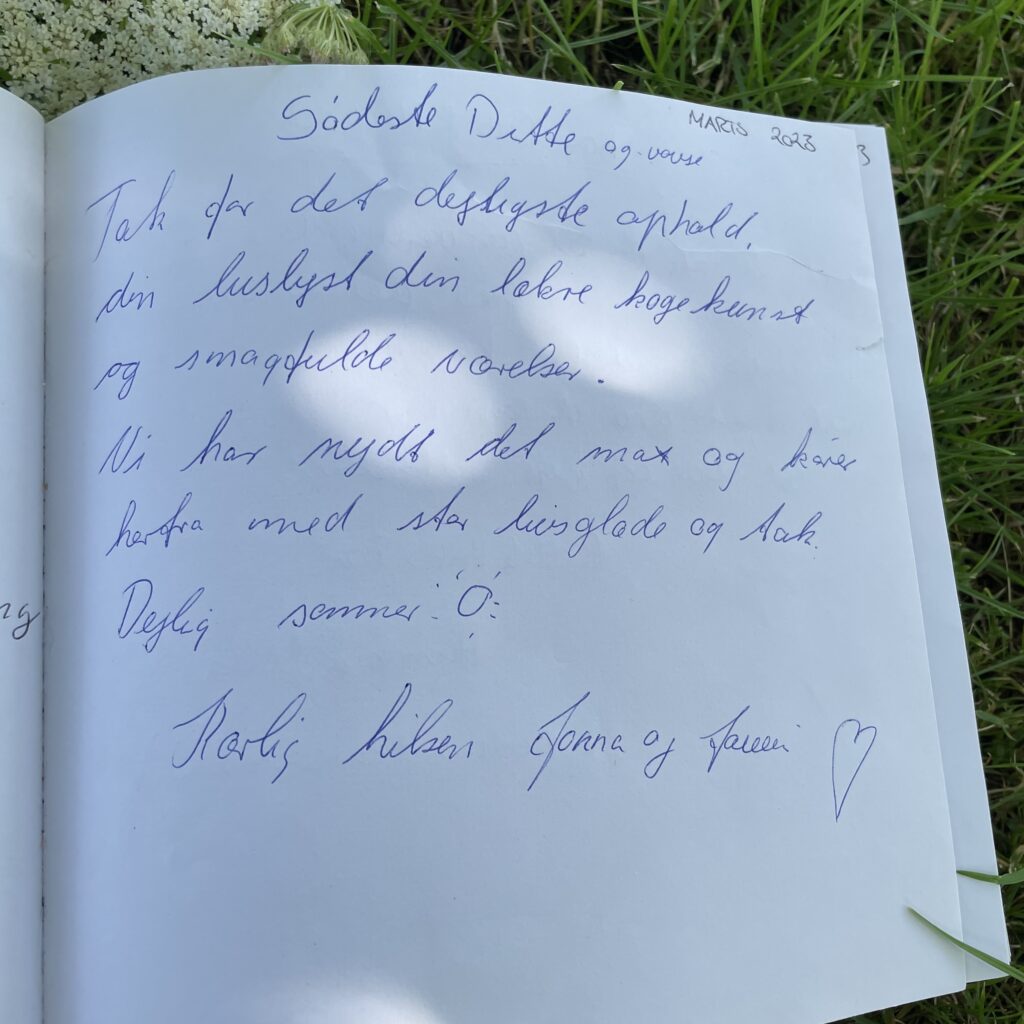 Sødeste Ditte og vovse
MARTS 2023
3
Tak for det dejligste ophold,
din livslyst din lækre kogekunst
og smagfulde værelser.
Vi har nydt det max og kører
herfra med stor livsglæde og tak.
Dejlig sommer
Kærlig hilsen Jonna og
ng